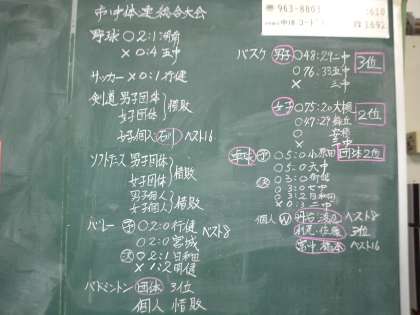 市中体連総合大会
野球 ○2:1湖南
×0:4五中
サッカー ×0:1行健
剣道 男子団体
女子団体 惜敗
女子個人 石川 ベスト16
ソフトテニス 男子団体
女子団体 惜敗
男子個人
女子個人 惜敗
バレー 男 ○2:0行健 ベスト8
○2:0宮城
女 ○2:1日和田
×1:2明健
バドミントン 団体 3位
個人 惜敗
963-8803
バスケ 男子 ○48:29二中 3位
○76:33五中
× 三中
女子 ○75:20大槻 2位
○47:27
○
×
○5:0小原田 団体2位
○5:0六中
○3:0行健
○3:0七中
○3:2日和田
×0:3二中
個人 W ベスト8
3位
ベスト16